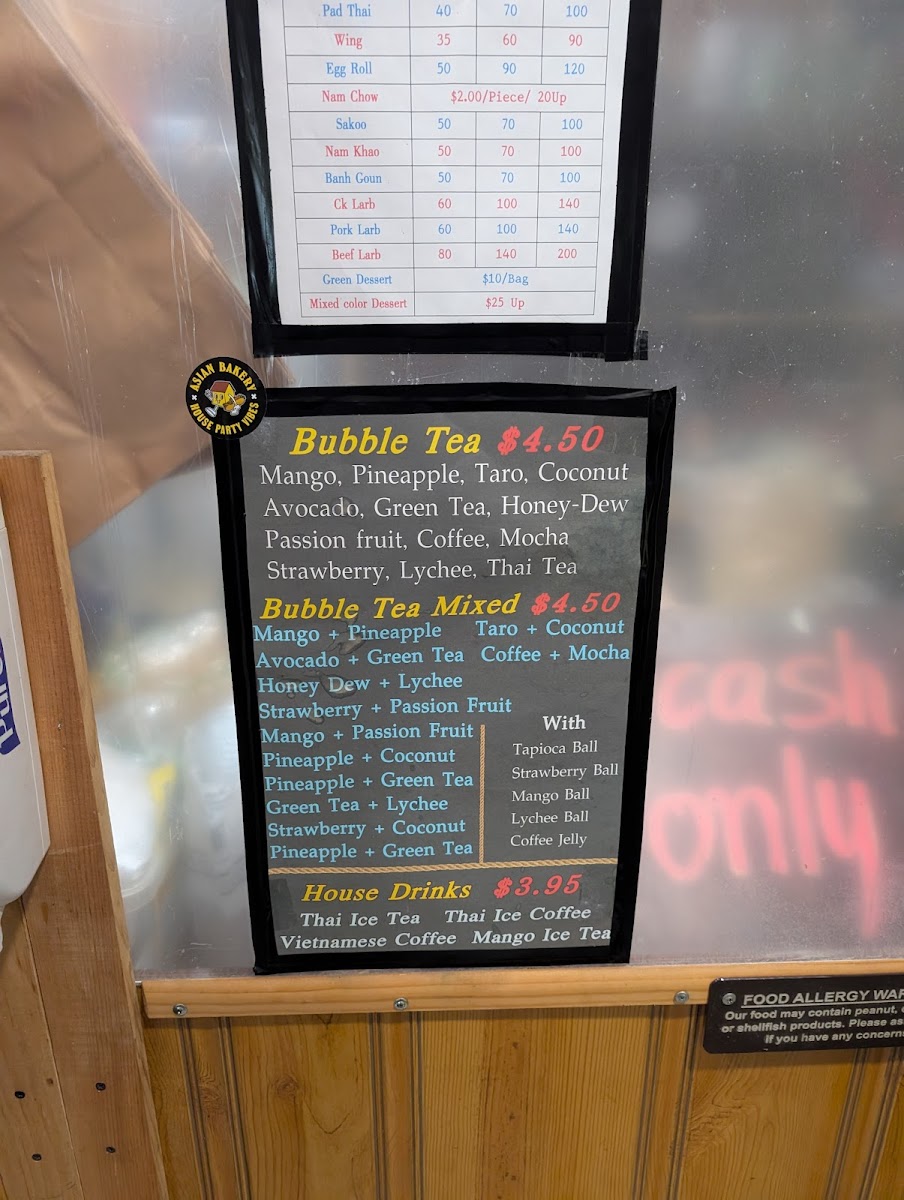 Pad Thai 40 70 100
Wing 35 60 90
Egg Roll 50 90 120
Nam Chow $2.00/Piece/ 20Up
Sakoo 50 70 100
Nam Khao 50 70 100
Banh Goun 50 70 100
Ck Larb 60 100 140
Pork Larb 60 100 140
Beef Larb 80 140 200
Green Dessert $10/Bag
Mixed color Dessert $25 Up
ASIAN BAKERY
HOUSE PARTY VIBES
Bubble Tea $4.50
Mango, Pineapple, Taro, Coconut
Avocado, Green Tea, Honey-Dew
Passion fruit, Coffee, Mocha
Strawberry, Lychee, Thai Tea
Bubble Tea Mixed $4.50
Mango + Pineapple Taro + Coconut
Avocado + Green Tea Coffee + Mocha
Honey Dew + Lychee
Strawberry + Passion Fruit
Mango + Passion Fruit
Pineapple + Coconut
Pineapple + Green Tea
Green Tea + Lychee
Strawberry + Coconut
Pineapple + Green Tea
With
Tapioca Ball
Strawberry Ball
Mango Ball
Lychee Ball
Coffee Jelly
House Drinks $3.95
Thai Ice Tea Thai Ice Coffee
Vietnamese Coffee Mango Ice Tea
cash
only
FOOD ALLERGY
Our food may contain peanut,
or shellfish products. Please
if you have any